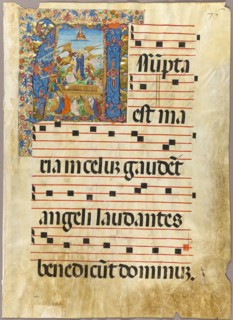 Assũpta
est ma
ria in celuʒ gaudẽt
angeli laudantes
benedicũt dominuʒ.